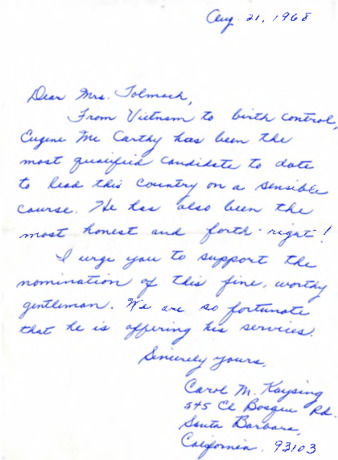 Aug. 21, 1968
Dear Mrs. Tolmach,
From Vietnam to birth control,
Eugene Mc Carthy has been the
most qualified candidate to date
to lead this country on a sensible
course. He has also been the
most honest and forth-right!
I urge you to support the
nomination of this fine, worthy
gentleman. We are so fortunate
that he is offering his services.
Sincerely yours,
Carol M. Kaysing
545 El Bosque Rd.
Santa Barbara,
California. 93103